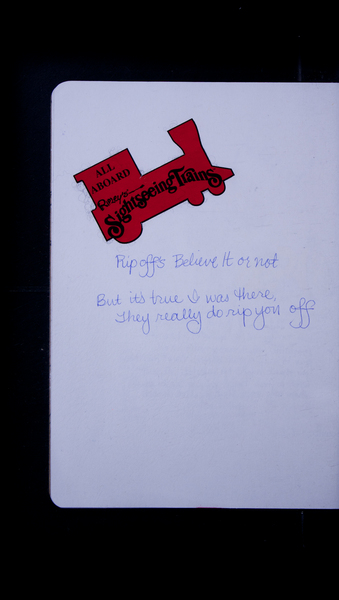 ALL
ABOARD
Ripley's
Sightseeing Trains
Rip off's Believe It or not
But it's true I was there,
They really do rip you off